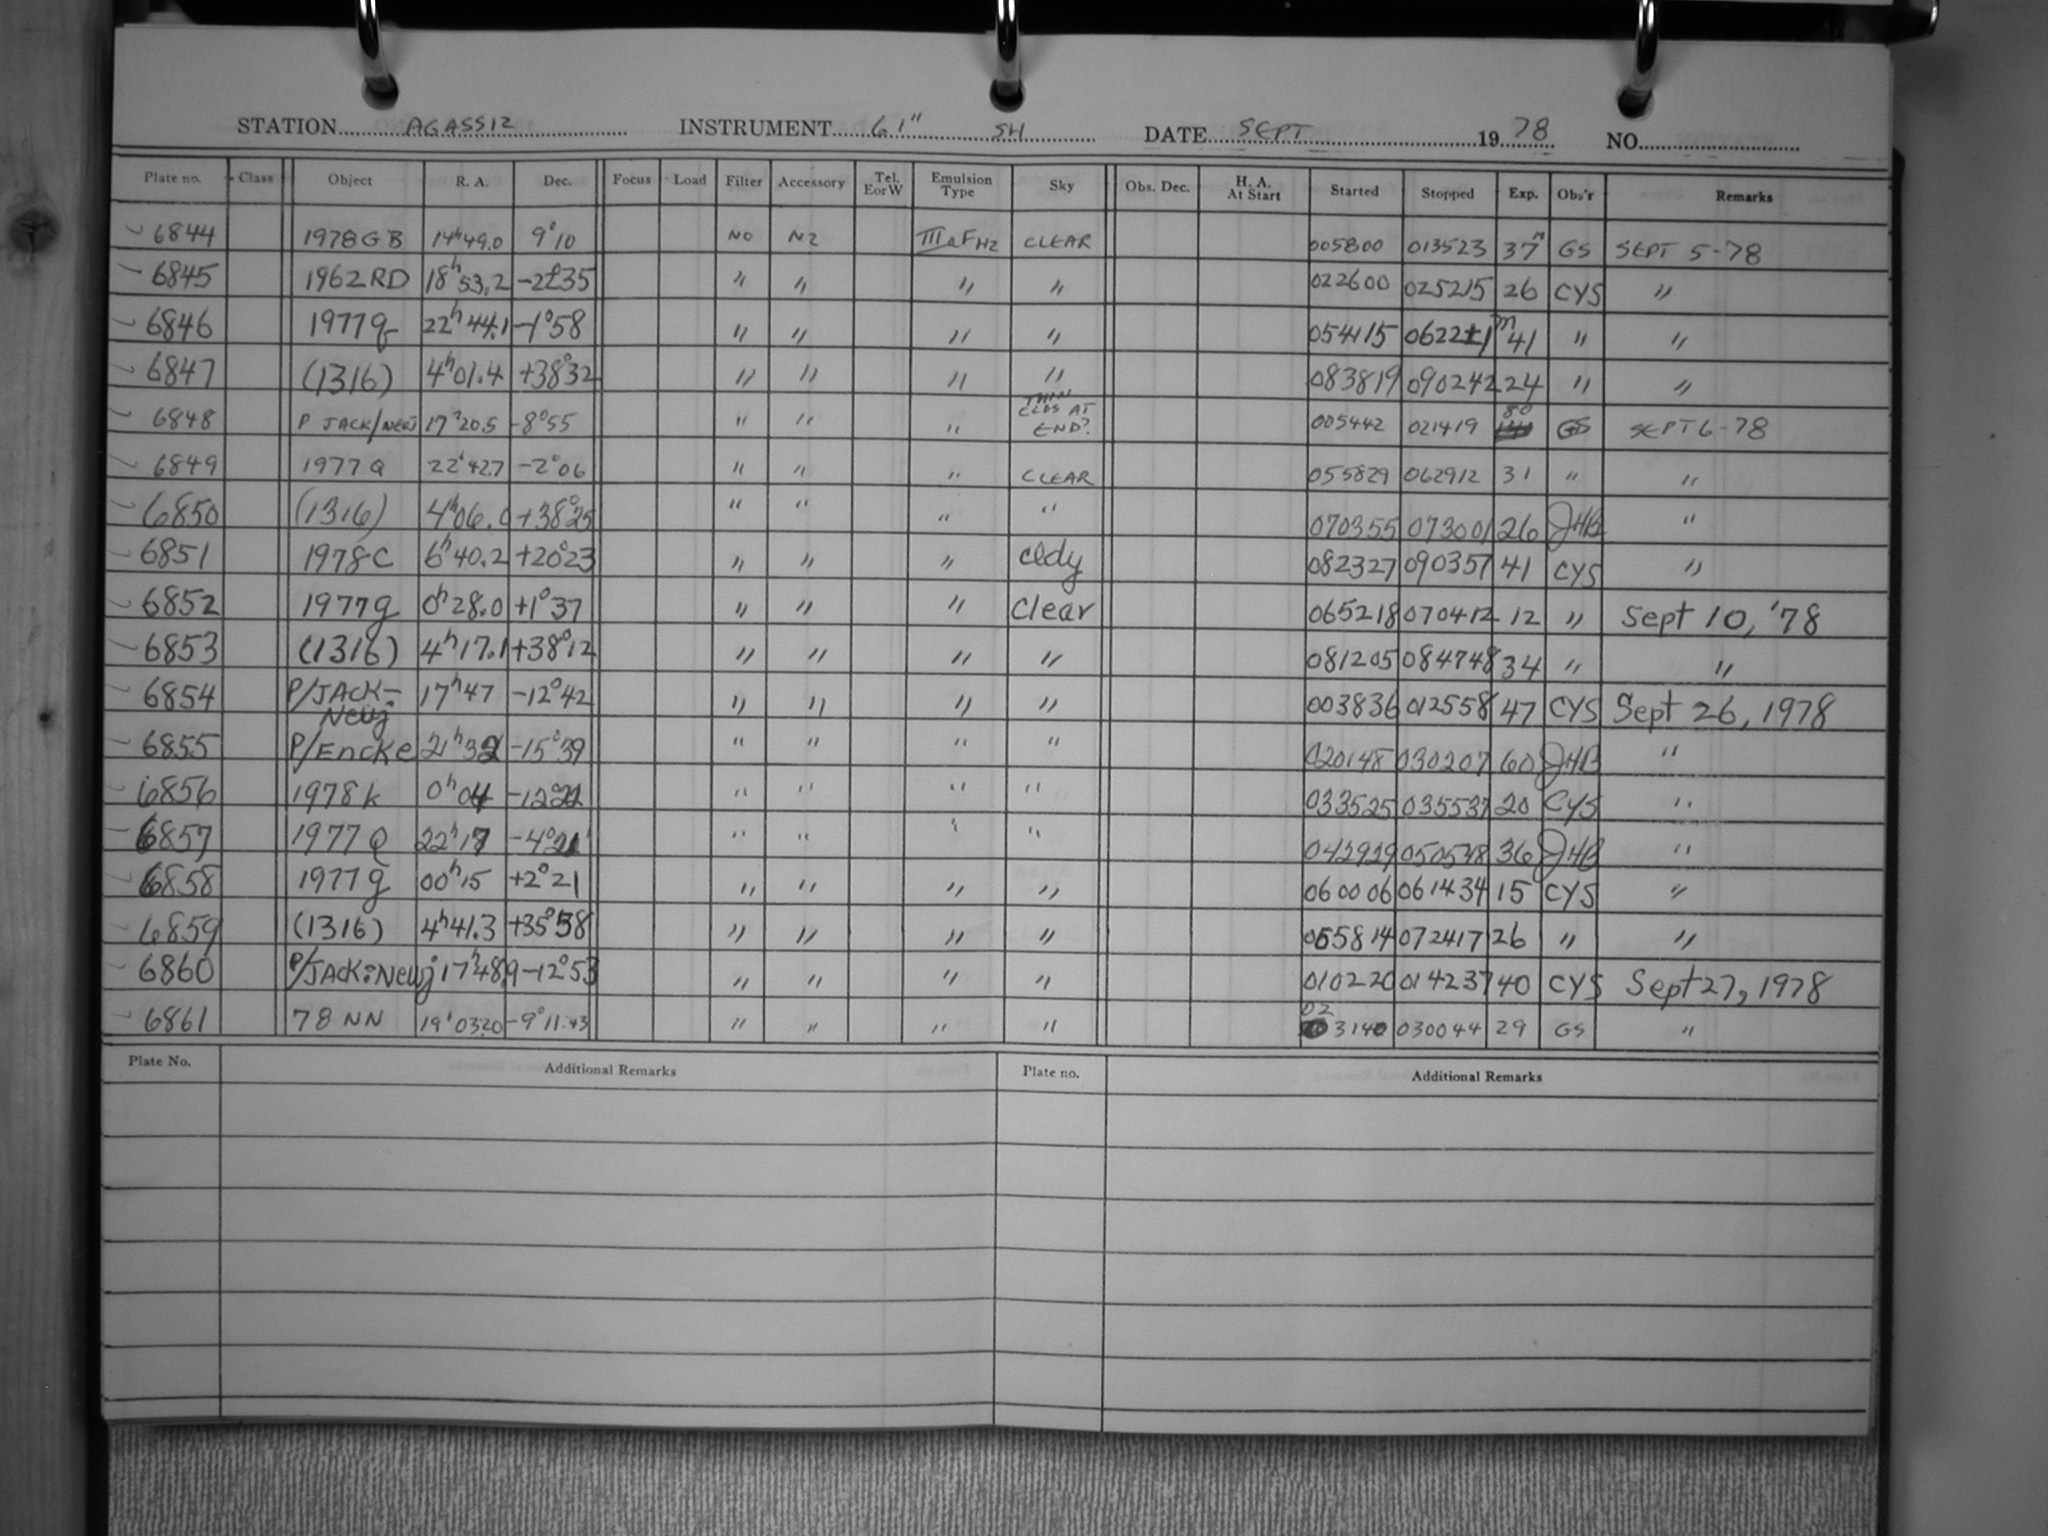 STATION AGASSIZ INSTRUMENT 61" SH DATE SEPT 1978 NO.
Plate no. Class Object R. A. Dec. Focus Load Filter Accessory Tel. E or W Emulsion Type Sky Obs. Dec. H. A. At Start Started Stopped Exp. Obs'r Remarks
6844 1978GB 14h49.0 9°10 NO N2 IIIaF H2 CLEAR 005800 013523 37m GS SEPT 5-78
6845 1962RD 18h53.2 -22°35 " " " " 022600 025215 26 CYS "
6846 1977q 22h44.1 -1°58 " " " " 054115 062211 41m " "
6847 (1316) 4h01.4 +38°32 " " " " 083819 090242 24 " "
6848 P JACK/Newj 17h20.5 -8°55 " " " THIN CLDS AT END? 005442 021419 80 GS SEPT 6-78
6849 1977Q 22h42.7 -2°06 " " " CLEAR 055829 062912 31 " "
6850 (1316) 4h06.0 +38°25 " " " " 070355 073001 26 JHB "
6851 1978C 6h40.2 +20°23 " " " cldy 082327 090357 41 CYS "
6852 1977q 0h28.0 +1°37 " " " Clear 065218 070412 12 " Sept 10, '78
6853 (1316) 4h17.1 +38°12 " " " " 081205 084748 34 " "
6854 P/JACK-Newj 17h47 -12°42 " " " " 003836 012558 47 CYS Sept 26, 1978
6855 P/Encke 21h32 -15°39 " " " " 020148 030207 60 JHB "
6856 1978k 0h04 -12°21 " " " " 033525 035537 20 CYS "
6857 1977Q 22h17 -4°21' " " " " 042929 050548 36 JHB "
6858 1977q 00h15 +2°21 " " " " 060006 061434 15 CYS "
6859 (1316) 4h41.3 +35°58 " " " " 065814 072417 26 " "
6860 P/JACK:Newj 17h48.9 -12°53 " " " " 010220 014237 40 CYS Sept 27, 1978
6861 78 NN 19h0320 -9°11.43 " " " " 023140 030044 29 GS "
Plate No. Additional Remarks Plate no. Additional Remarks